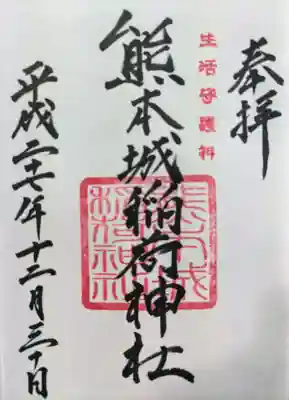 奉拝
生活守護
熊本城稲荷神社
平成二十七年十二月三十日